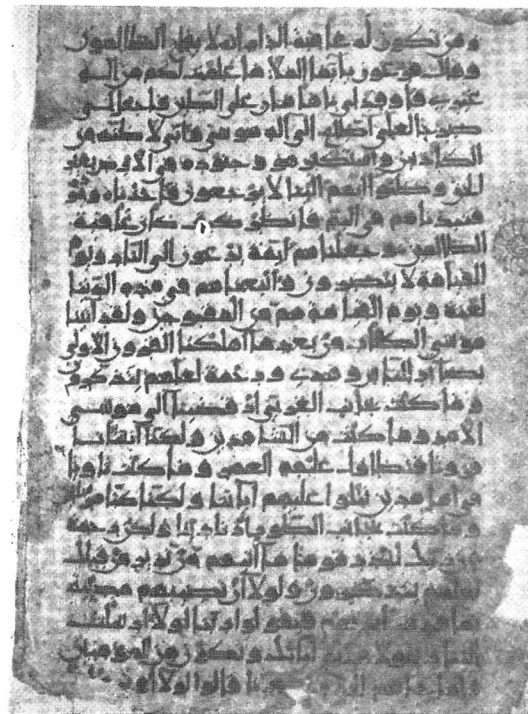 ومن تكون له عاقبة الدار انه لا يفلح الظالمون
وقال فرعون يا ايها الملا ما علمت لكم من اله
غيري فاوقد لي يا هامان على الطين فاجعل لي
صرحا لعلي اطلع الى اله موسى واني لاظنه من
الكاذبين واستكبر هو وجنوده في الارض بغير
الحق وظنوا انهم الينا لا يرجعون فاخذناه وجنو
فنبذناهم في اليم فانظر كيف كان عاقبة
الظالمين وجعلناهم ايمة يدعون الى النار ويوم
القيامة لا ينصرون واتبعناهم في هذه الدنيا
لعنة ويوم القيامة هم من المقبوحين ولقد اتينا
موسى الكتاب من بعد ما اهلكنا القرون الاولى
بصاير للناس وهدى ورحمة لعلهم يتذكرون
وما كنت بجانب الغربي اذ قضينا الى موسى
الامر وما كنت من الشاهدين ولكنا انشانا
قرونا فتطاول عليهم العمر وما كنت ثاويا
في اهل مدين تتلوا عليهم اياتنا ولكنا كنا
وما كنت بجانب الطور اذ نادينا ولكن رحمة
من ربك لتنذر قوما ما اتاهم من نذير من قبلك
لعلهم يتذكرون ولولا ان تصيبهم مصيبة
بما ايديهم فيقولوا ربنا لولا ارسلت
الينا رسولا فنتبع اياتك ونكون من المومنين
فلما جاهم عندنا قالوا لولا اوتي